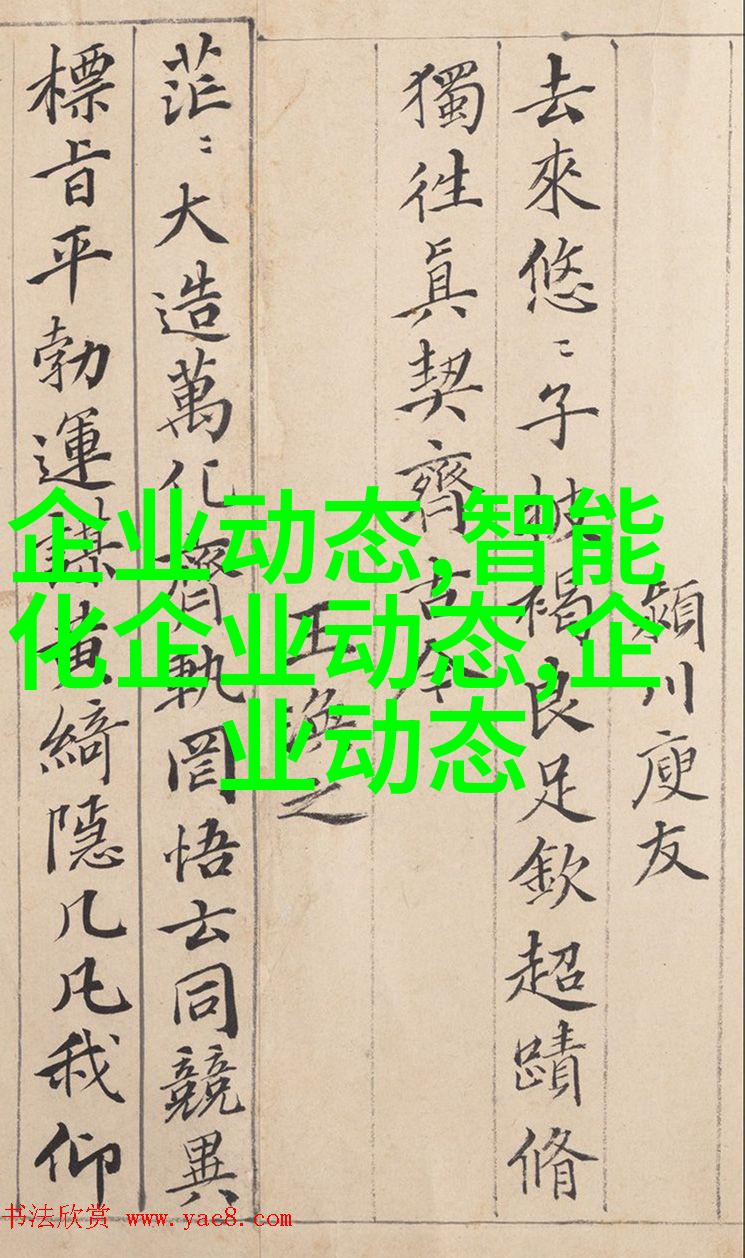 潁川庾友
去來悠〻子披褐良足欽超蹟脩
獨徃眞契齊古今
王渙之
茫〻大造萬化齊軌罔悟玄同競異
標旨平勃運謀黃綺隱几凡我仰
企业动态,智能
化企业动态,企
业动态
书法欣赏 www.yac8.com